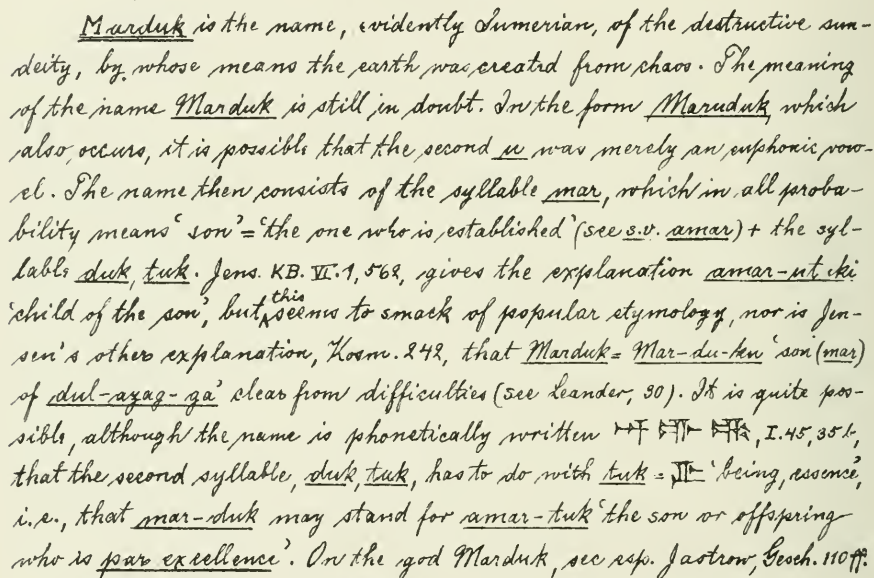 Marduk is the name, evidently Sumerian, of the destructive sun-
deity, by whose means the earth was created from chaos. The meaning
of the name Marduk is still in doubt. In the form Maruduk, which
also occurs, it is possible that the second u was merely an euphonic vow-
el. The name then consists of the syllable mar, which in all proba-
bility means 'son' = 'the one who is established' (see s.v. amar) + the syl-
lable duk, tuk. Jens. KB. VI. 1, 562, gives the explanation amar-ut-ki
'child of the son', but this seems to smack of popular etymology, nor is Jen-
sen's other explanation, Kosm. 242, that Marduk = Mar-du-ku 'son (mar)
of dul-azag-ga' clear from difficulties (see Leander, 30). It is quite pos-
sible, although the name is phonetically written , I. 45, 35 b,
that the second syllable, duk, tuk, has to do with tuk = 'being, essence',
i.e., that mar-duk may stand for amar-tuk 'the son or offspring
who is par excellence'. On the god Marduk, see esp. Jastrow, Gesch. 110 ff.